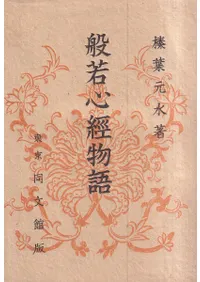 榛葉元水著
般若心經物語
東京 同文館版